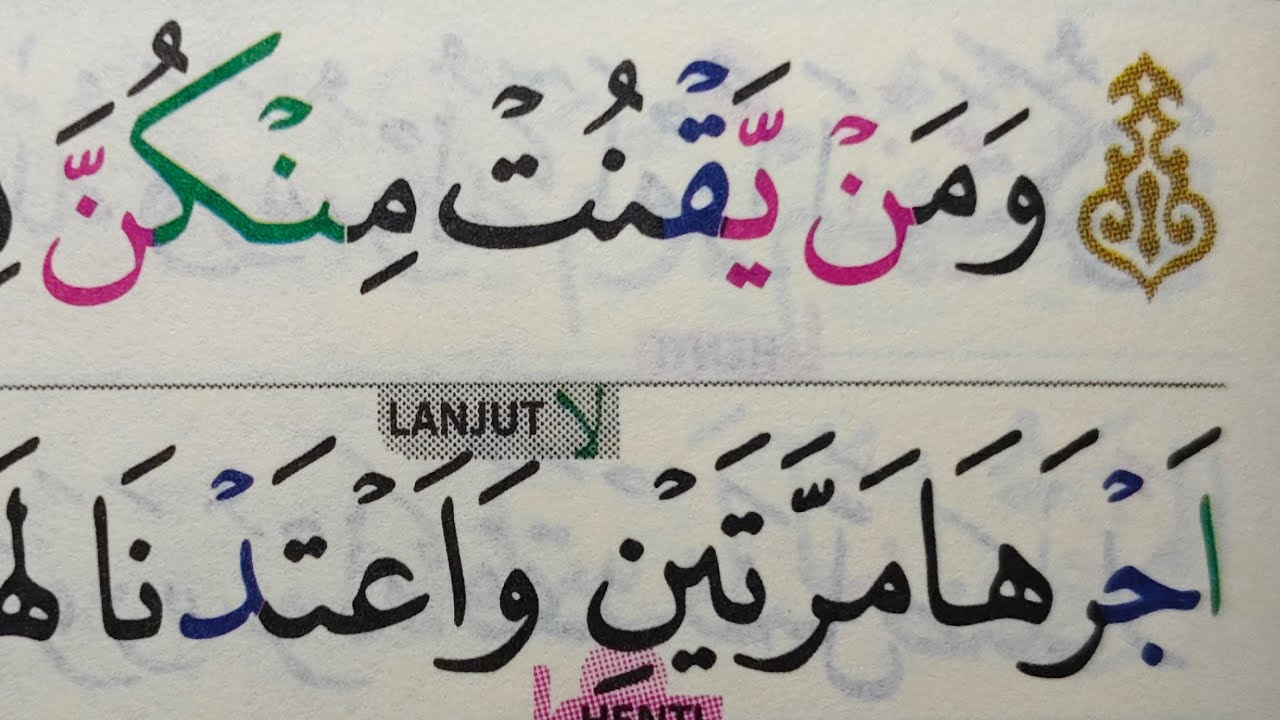 وَمَنْ يَّقْنُتْ مِنْكُنَّ
LANJUT لا
اَجْرَهَا مَرَّتَيْنِ وَاَعْتَدْنَا
HENTI